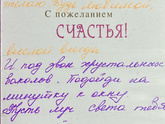 желаю Будь любимой,
С пожеланием
СЧАСТЬЯ!
весёлой всегда
И под звон хрустальных
бокалов. Подойди на
минутку к окну
Пусть луч света тебя